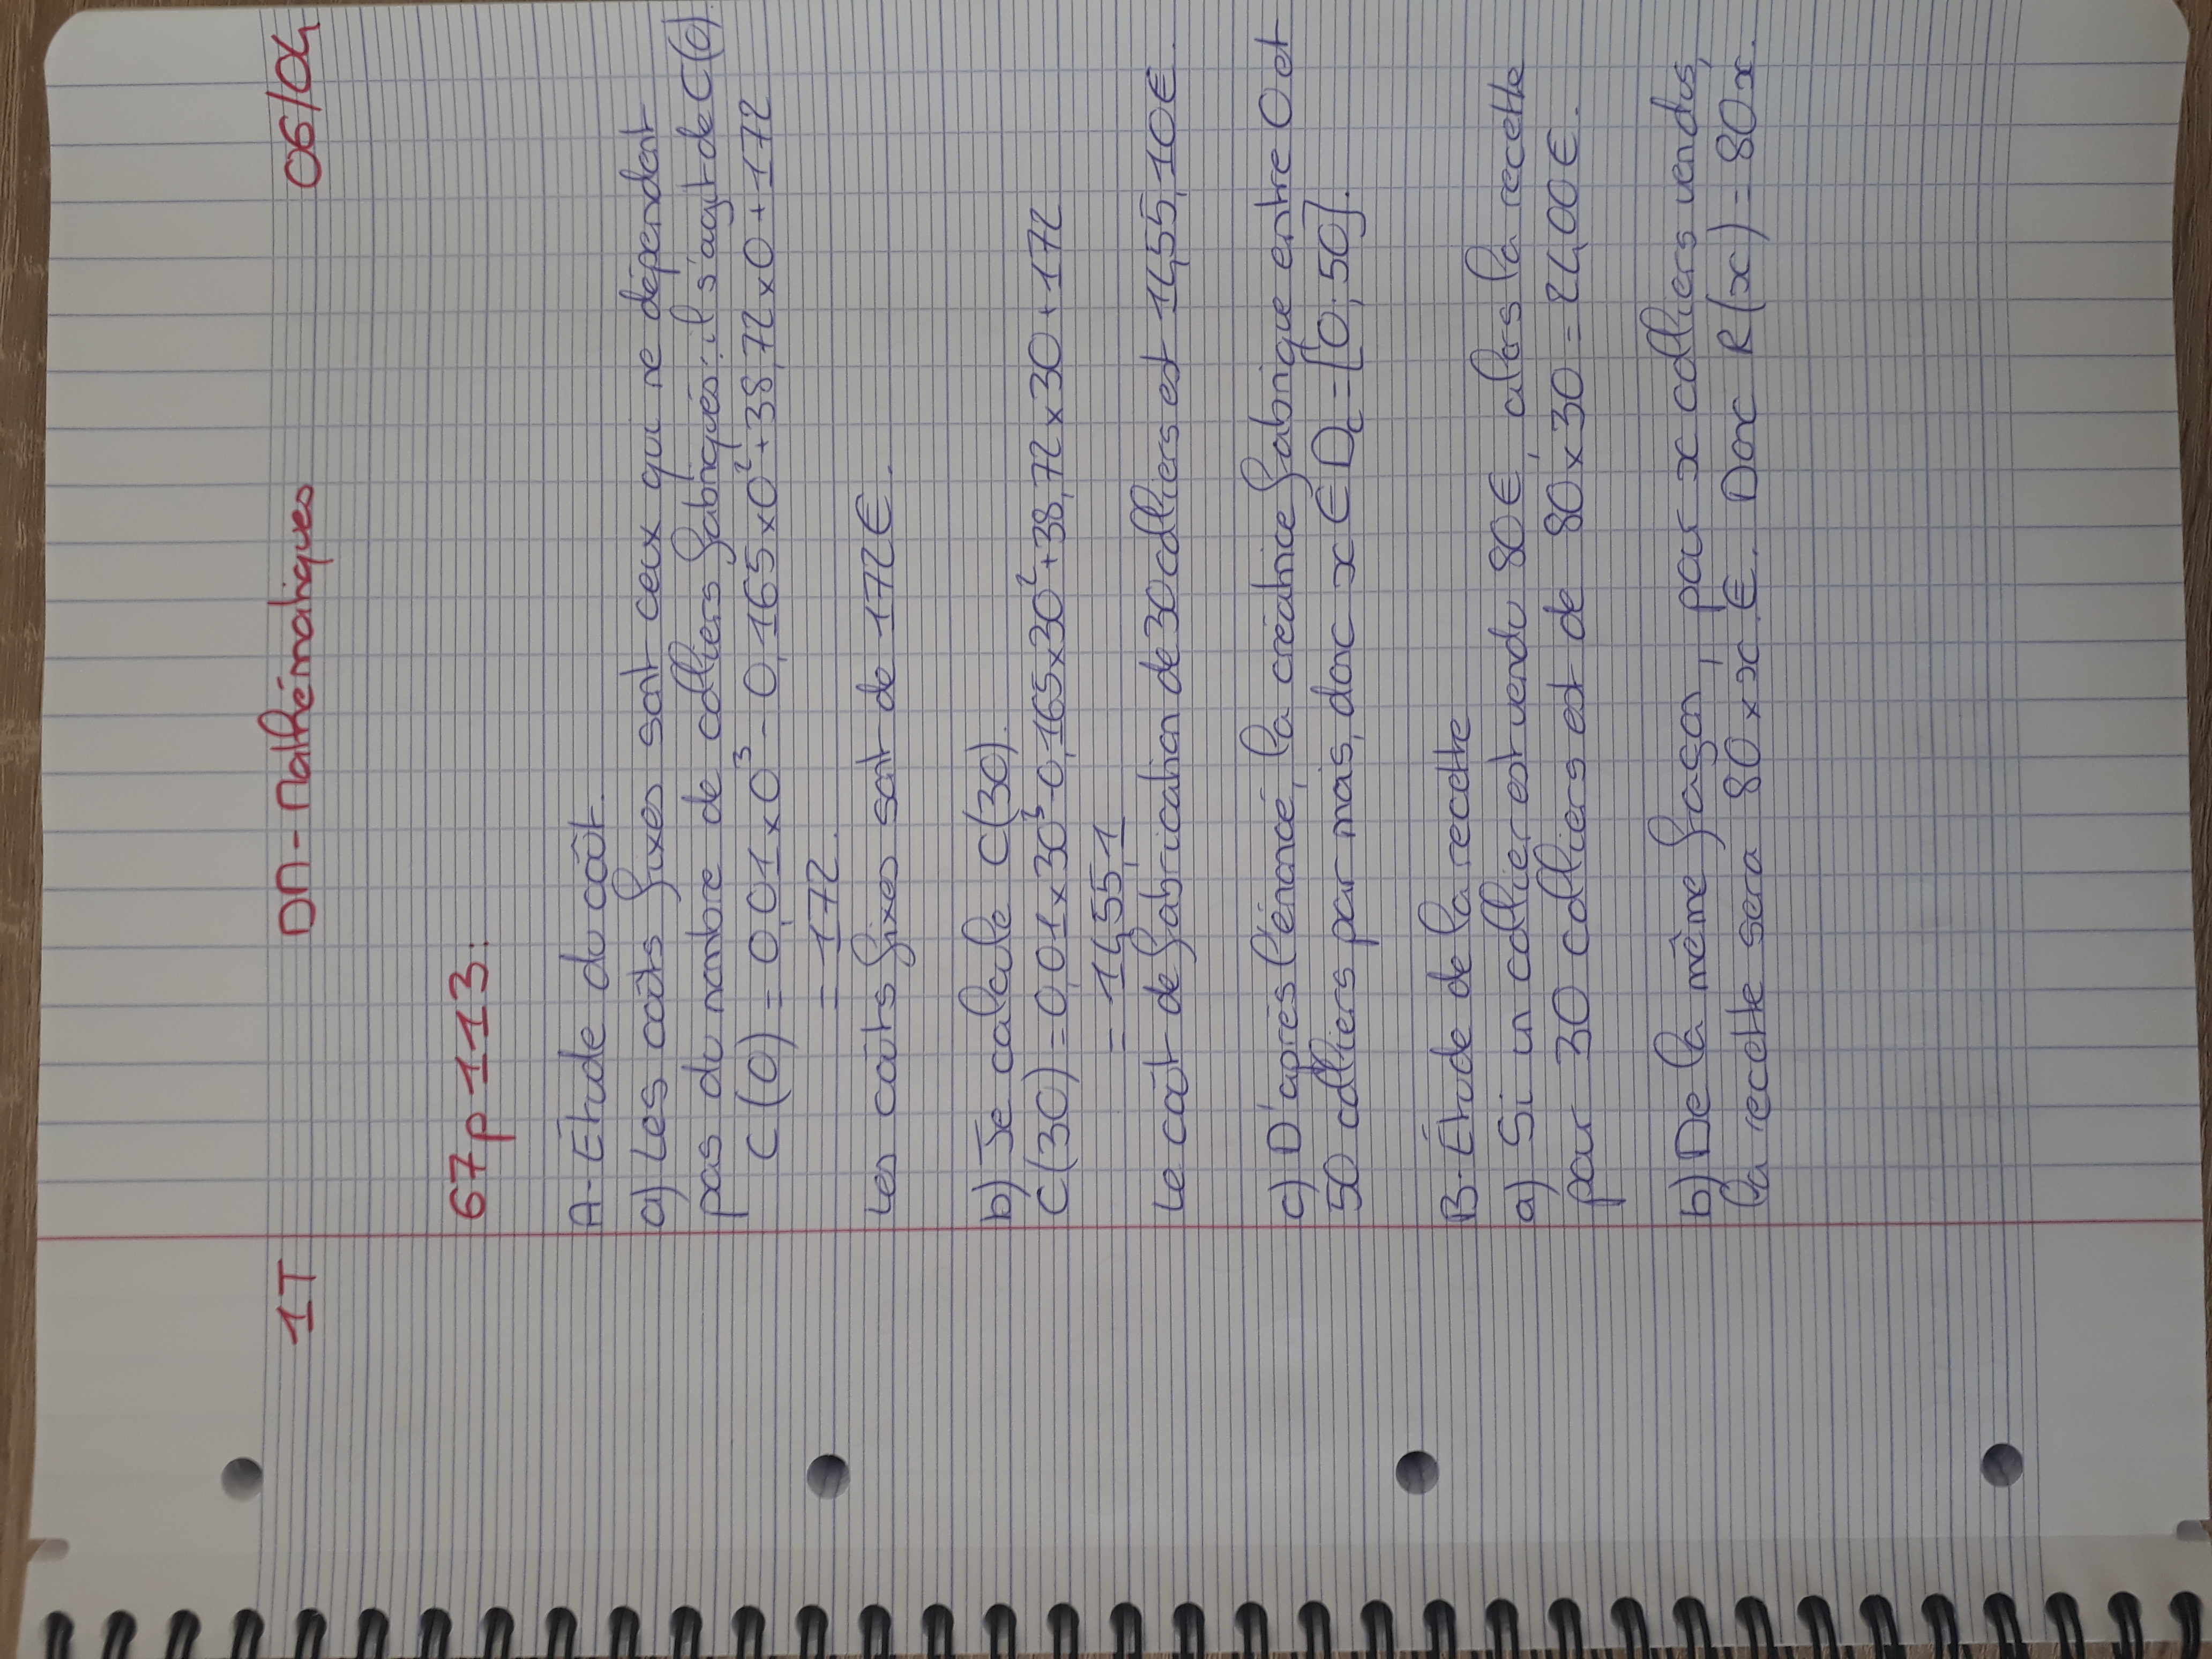 1T DM - Mathématiques 06/04
67 p 113:
A- Étude du coût.
a) Les coûts fixes sont ceux qui ne dépendent
pas du nombre de colliers fabriqués : il s'agit de C(0).
C(0) = 0,01 x 0³ - 0,165 x 0² + 38,72 x 0 + 172
= 172.
Les coûts fixes sont de 172€.
b) Je calcule C(30).
C(30) = 0,01 x 30³ - 0,165 x 30² + 38,72 x 30 + 172
= 1455,1
Le coût de fabrication de 30 colliers est 1455,10€.
c) D'après l'énoncé, la créatrice fabrique entre 0 et
50 colliers par mois, donc x ∈ D_C = [0 ; 50].
B- Étude de la recette
a) Si un collier est vendu 80€, alors la recette
pour 30 colliers est de 80 x 30 = 2400€.
b) De la même façon, pour x colliers vendus,
la recette sera 80 x x €. Donc R(x) = 80x.